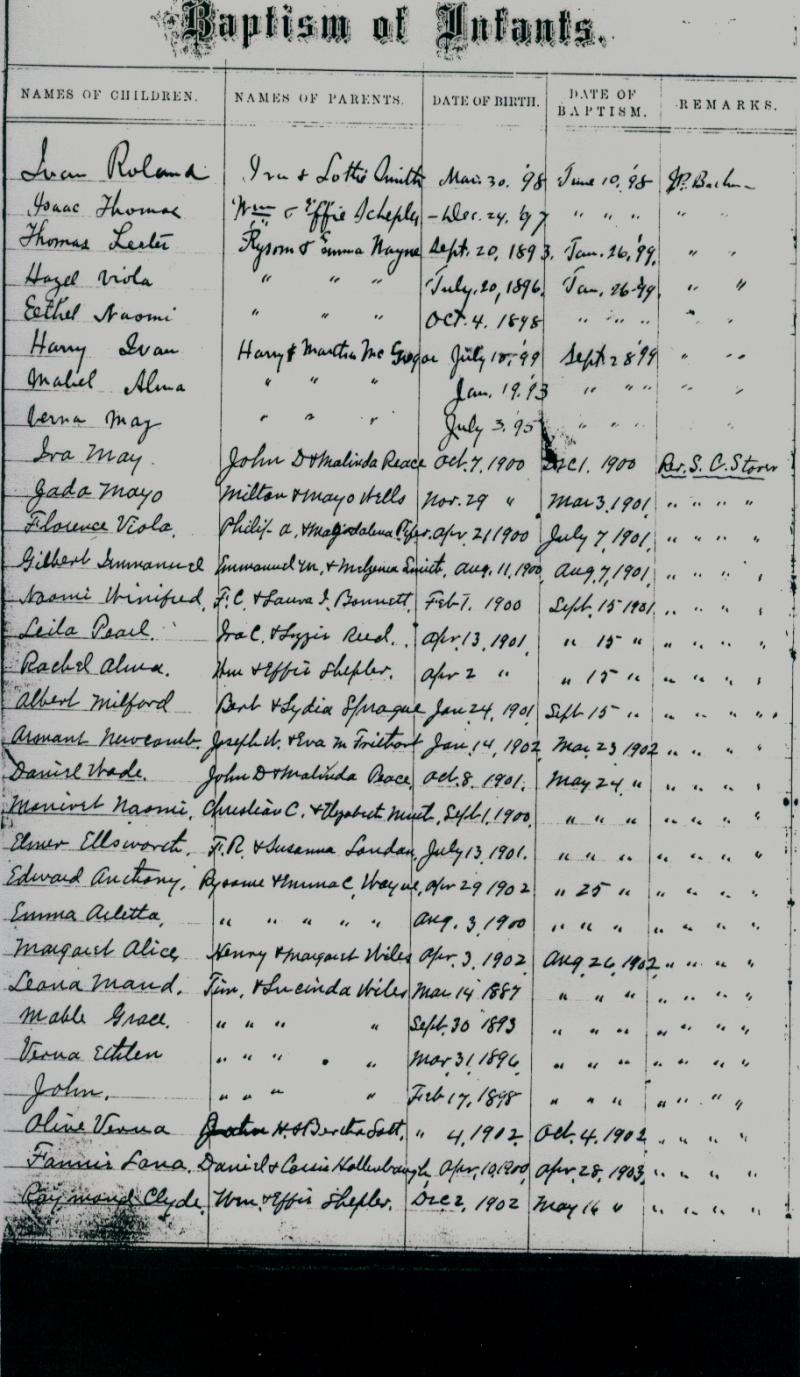 Baptism of Infants.
NAMES OF CHILDREN. NAMES OF PARENTS. DATE OF BIRTH. DATE OF BAPTISM. REMARKS.
Ivan Roland Ira & Lottie Smith Mar. 30. '98 June 10, '98
Isaac Thomas Wm & Effie Schepler - Dec. 24. '97 " " " " "
Thomas Lester Rysom & Emma Wayne Sept. 20, 1893. Jan. 26, '99, " "
Hazel Viola " " " July. 20, 1896. Jan. 26 '99. " "
Eethel Naomi " " " Oct. 4. 1898 " " " " "
Harry Ivan Harry & Martha McGregor July 18, '99 Sept. 28 '99 " "
Mabel Alma " " " Jan. 19. '93 " " " " "
Verna May " " " July 3. '95 " " " "
Iva May. John D & Malinda Peace Oct. 7. 1900 Dec 1. 1900 Rev. S. C. Stover
Zada Mayo Milton & Mayo Wells Nov. 29 " Mar 3, 1901 " " " "
Florence Viola. Philip A. & Magdalena Apr. 21 1900 July 7, 1901, " " " "
Gilbert Immanuel Emmanuel M. & Smith, Aug. 11, 1900, Aug 7, 1901, " " " "
Naomi Winifred, F. C. & Laura I. Bonnett, Feb 1. 1900 Sept. 15 1901 " " " "
Leila Pearl. Ira C. & Lizzie Reed. Apr. 13, 1901, " 15 " " " " "
Rachel Alma. Wm & Effie Shepler. Apr 2 " " 15 " " " " "
Albert Milford Bert & Lydia Sprague Jan 24, 1901 Sept 15 " " " " "
Armant Newcomb. Joseph W. & Eva M Jan. 14, 1902, Mar. 23 1902 " " " "
Daniel Wade. John D & Malinda Peace, Oct. 8. 1901. May 24 " " " " "
Naomi, Christian C. & Elizabeth Sept. 1, 1900, " " " " " " "
Elmer Ellsworth. F. R. & Susanna Loudan, July 13, 1901. " " " " " " "
Edward Anthony, Rysome & Emma C. Wayne, Apr 29 1902 " 25 " " " " "
Emma Arletta, " " " " " Aug. 3, 1900 " " " " " " "
Margaret Alice, Henry & Margaret Wiles Apr. 3, 1902, Aug. 26, 1902, " " " "
Leona Maud. Tim. & Lucinda Wiles Mar 14 1887 " " " " " " "
Mable Grace. " " " " Sept. 30 1893 " " " " " " "
Verna " " " " Mar. 31, 1896, " " " " " " "
John. " " " " Feb 17, 1898 " " " " " " "
Olive Verna H. & Bertha Sott, " 4, 1902, Oct. 4. 1902 " " " "
Fannie Lana. Daniel & Cassie Hollenbaugh Apr. 10, 1900, Apr. 28, 1903, " " " "
Raymond Clyde, Wm. & Effie Shepler. Dec 2, 1902 May 16 " " " " "